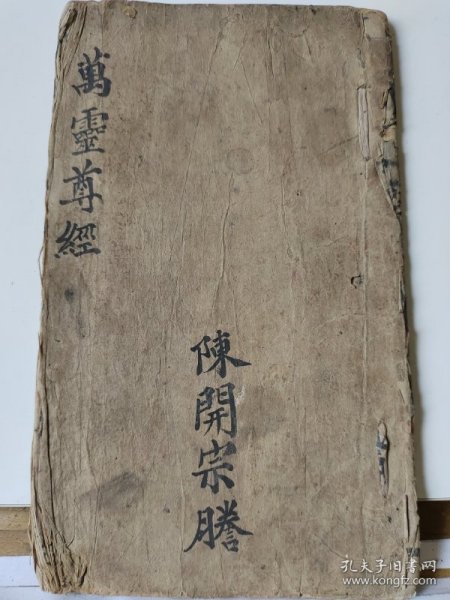 萬靈尊經
陳開宗謄
孔夫子旧书网
www.kongfz.com